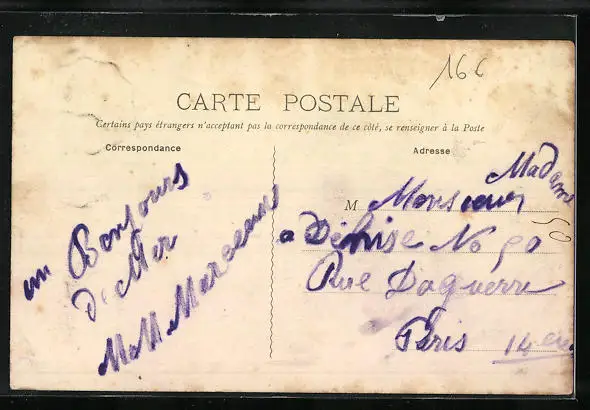 166
CARTE POSTALE
Certains pays étrangers n'acceptant pas la correspondance de ce côté, se renseigner à la Poste
Correspondance
Adresse
un Bonjours
de Mer
M et M
Madame
M Monsieur
Denise No 50
50
Rue Daguerre
Paris 14 eme